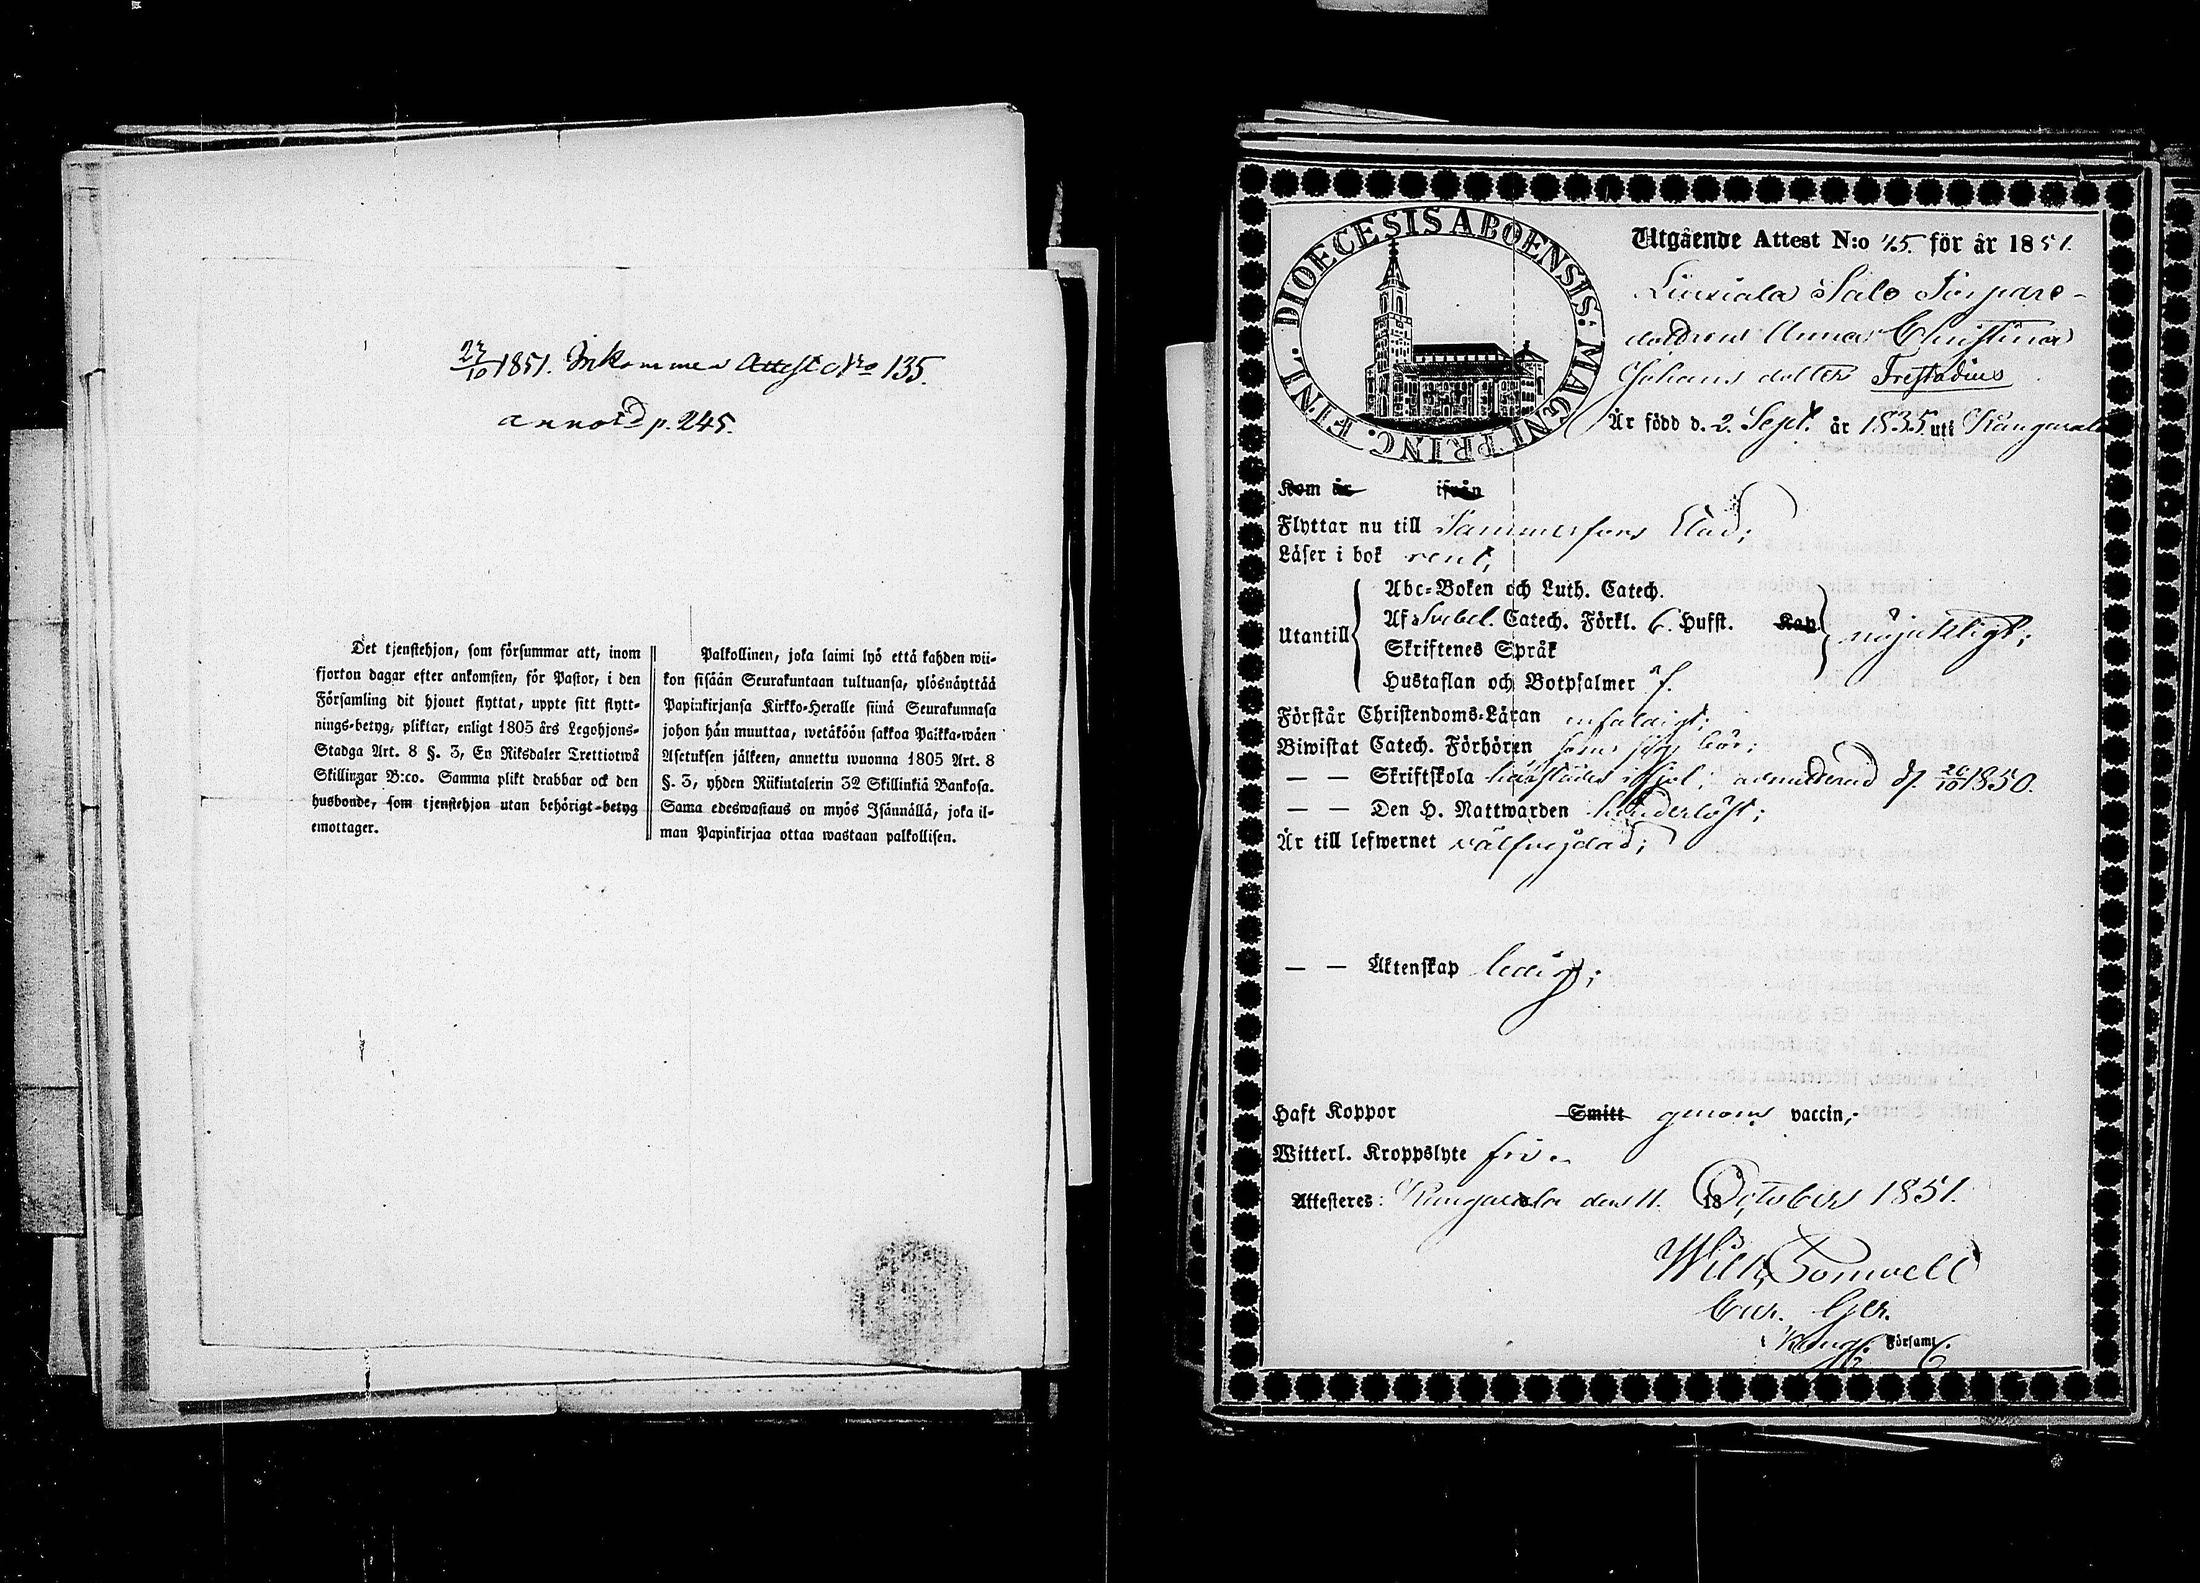 27/10 1851. Inkommen Attest No 135.
annot p. 245.
Det tjenstehjon, som försummar att, inom
fjorton dagar efter ankomsten, för Pastor, i den
Församling dit hjonet flyttat, uppte sitt flytt-
nings-betyg, pliktar, enligt 1805 års Legohjons-
Stadga Art. 8 §. 3, En Riksdaler Trettiotwå
Skillingar B:co. Samma plikt drabbar ock den
husbonde, som tjenstehjon utan behörigt-betyg
emottager.
Palkollinen, joka laimi lyö että kahden wii-
kon sisään Seurakuntaan tultuansa, ylösnäyttää
Papinkirjansa Kirkko-Heralle siinä Seurakunnasa
johon hän muuttaa, wetäköön sakkoa Paikka-wäen
Asetuksen jälkeen, annettu wuonna 1805 Art. 8
§. 3, yhden Riikintalerin 32 Skillinkiä Bankosa.
Sama edeswastaus on myös Isännällä, joka il-
man Papinkirjaa ottaa wastaan palkollisen.
DIOECESIS ABOENSIS. MAGNI PRINC. FINL.
Utgående Attest N:o 45. för år 1851.
Liuxiala Salo Torpare-
dottren Anna Christina
Johans dotter Frestadius
Är född d. 2. Sept. år 1835 uti Kangasala
Kom år ifrån
Flyttar nu till Tammerfors Stad;
Läser i bok rent,
Utantill
Abc-Boken och Luth. Catech.
Af Svebel. Catech. Förkl. 6. Hufst. Kap.
Skriftenes Språk
Hustaflan och Botpsalmer
nöjaktligt;
Förstår Christendoms-Läran enfaldigt;
Biwistat Catech. Förhören som sig bör;
— — Skriftskola härstädes admitterad d. 26/10 1850.
— — Den H. Nattwarden hinderlöst;
Är till lefwernet välfrejdad;
— — Äktenskap ledig;
Haft Koppor Smitt genom vaccin;
Witterl. Kroppslyte fri.
Attesteres: Kangasala den 11. 18 October 1851.
Wilh.
Församl.